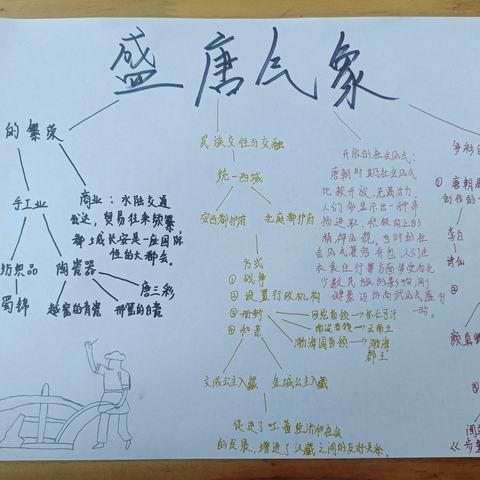 盛唐气象
的繁荣
手工业
商业：水陆交通
发达，贸易往来频繁，
都城长安是一座国际
性的大都会。
纺织品
陶瓷器
蜀锦
越窑的青瓷
邢窑的白瓷
唐三彩
民族交往与交融
统一西域
安西都护府
北庭都护府
方式
① 战争
② 设置行政机构
③ 册封
回纥首领→怀仁可汗
南诏首领→云南王
渤海国首领→渤海
郡王
④ 和亲
文成公主入藏
金城公主入藏
促进了吐蕃经济和社会
的发展，增进了汉藏之间的友好关系。
开放的社会风气：
唐朝时期社会风气
比较开放，充满活力，
人们多显示出一种昂
扬进取、积极向上的
精神风貌，当时的社
会风气兼容并包，人们在
衣食住行等方面
少数民族的影响，
一时。
多彩的
① 唐朝
创作的
李白
诗仙
②
颜真卿
③